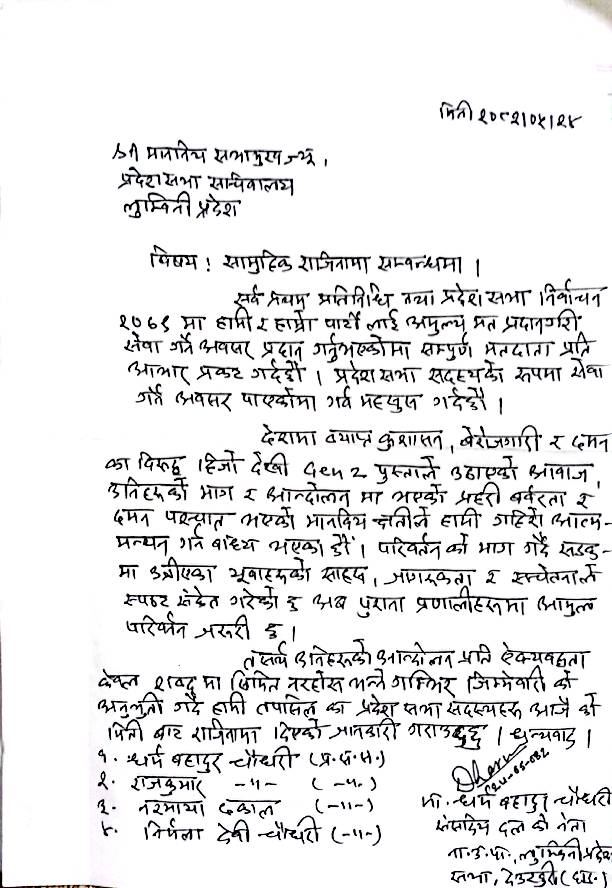 मिती २०८२।०५।२४
श्री माननिय सभामुख ज्यू,
प्रदेश सभा सचिवालय
लुम्बिनी प्रदेश
विषय : सामुहिक राजिनामा सम्बन्धमा ।
सर्व प्रथम प्रतिनिधि तथा प्रदेश सभा निर्वाचन
२०७९ मा हामी र हाम्रो पार्टी लाई अमुल्य मत प्रदान गरी
सेवा गर्ने अवसर प्रदान गर्नुभएकोमा सम्पुर्ण मतदाता प्रति
आभार प्रकट गर्दछौं । प्रदेश सभा सदस्यको रूपमा सेवा
गर्ने अवसर पाएकोमा गर्व महसुस गर्दछौं ।
देशमा व्याप्त कुशासन, बेरोजगारी र दमन
का विरूद्ध हिजो देखी Gen Z पुस्ताले उठाएको आवाज,
उनिहरुको माग र आन्दोलन मा भएको प्रहरी बर्बरता र
दमन पश्चात भएको मानविय क्षतीले हामी गहिरो आत्म-
मन्थन गर्न बाध्य भएका छौं । परिवर्तन को माग गर्दै सडक-
मा उत्रीएका यूवाहरुको साहस, जागरुकता र सचेतनाले
स्पष्ट संकेत गरेको छ अब पुराना प्रणालीहरुमा आमुल
परिवर्तन जरुरी छ ।
तसर्थ उनिहरुको आन्दोलन प्रति ऐक्यबद्धता
केवल शब्द मा सिमित नरहोस भन्ने गम्भिर जिम्मेवारी को
अनुभुती गर्दै हामी तपसिल का प्रदेश सभा सदस्यहरु आजै को
मिती बाट राजिनामा दिएको जानकारी गराउदछु । धन्यवाद ।
१. धर्म बहादुर चौधरी (प्र.स.स.)
२. राजकुमार -"- (-"-)
३. नरमाया ढकाल (-"-)
४. निर्मला देवी चौधरी (-"-)
Dharm
मा. धर्म बहादुर चौधरी
संसदिय दल को नेता
ना.उ.पा., लुम्बिनी प्रदेश
सभा, देउखुरी (दाङ)